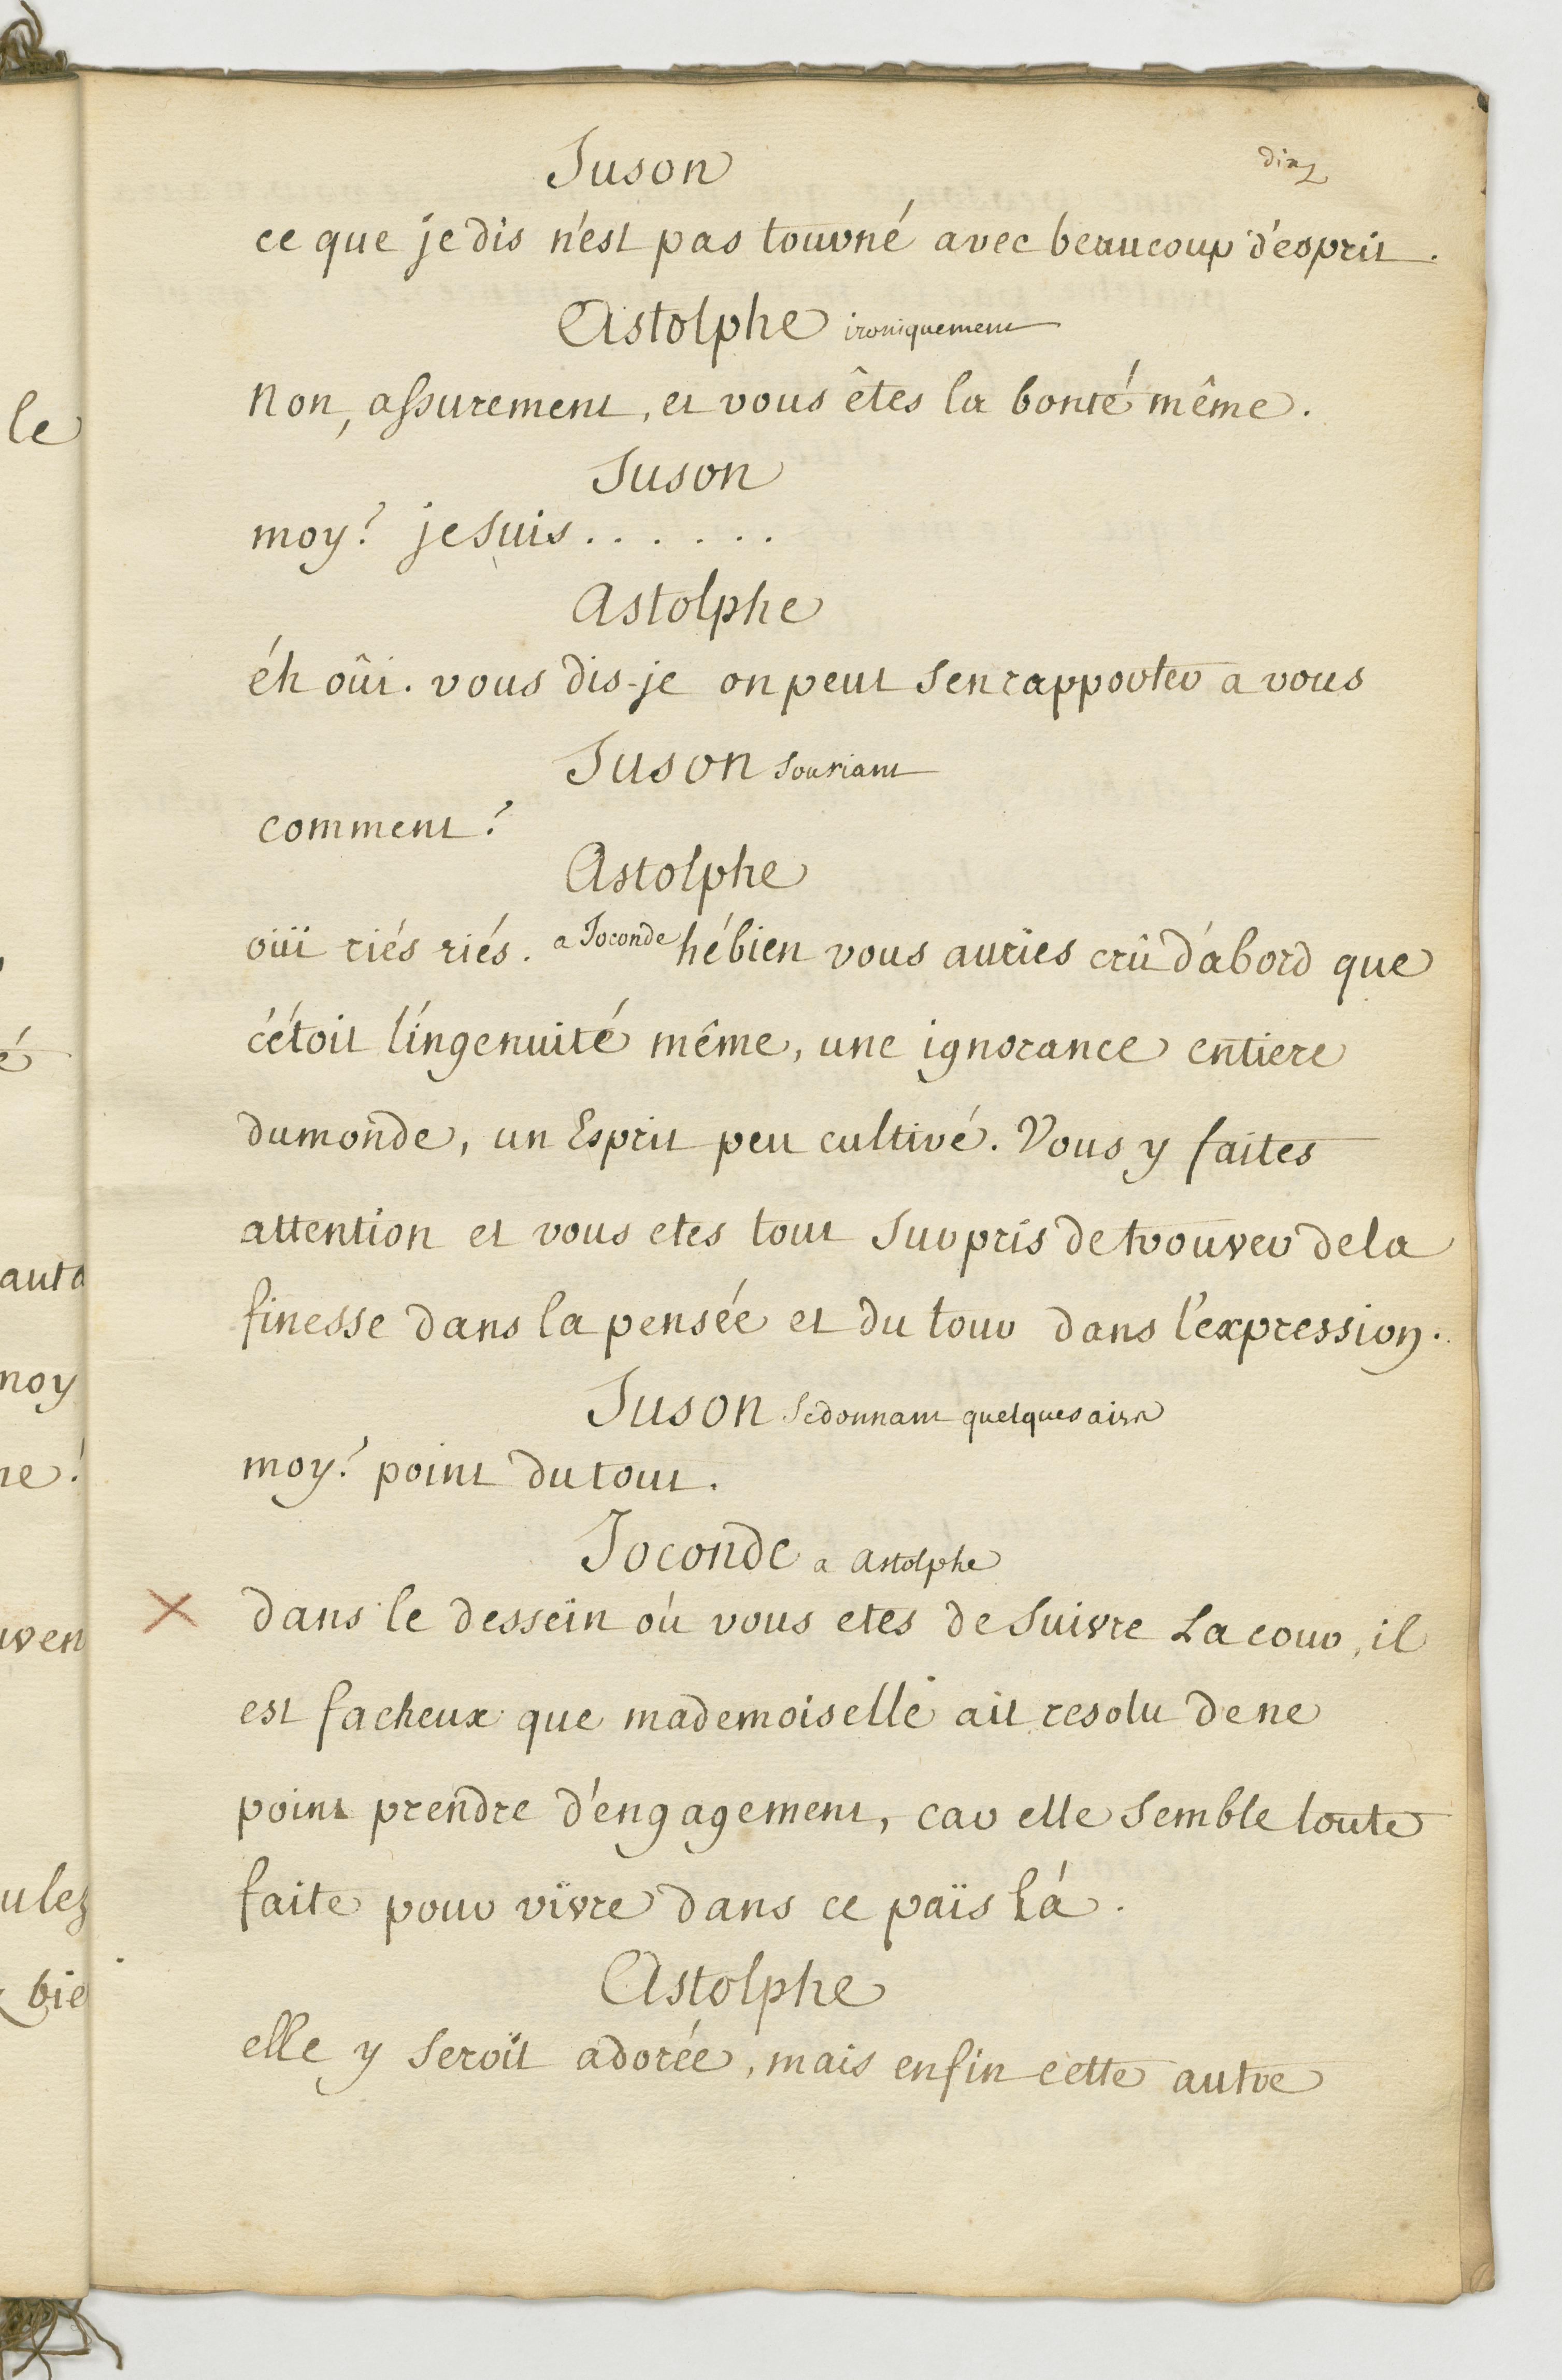 dix
Suson
ce que je dis n'est pas tourné avec beaucoup d'esprit.
Astolphe ironiquement
Non, assurement, et vous êtes la bonté même.
Suson
moy? je suis......
Astolphe
éh oûi. vous dis-je on peut s'en rapporter a vous
Suson souriant
comment?
Astolphe
oüi riés riés. a Joconde hé bien vous auriés crû d'abord que
c'étoit l'ingenuité même, une ignorance entiere
du monde, un Esprit peu cultivé. Vous y faites
attention et vous etes tout surpris de trouver de la
finesse dans la pensée et du tour dans l'expression.
Suson se donnant quelques airs
moy? point du tout.
Joconde a astolphe
dans le dessein où vous etes de suivre La cour, il
est facheux que mademoiselle ait resolu de ne
point prendre d'engagement, car elle semble toute
faite pour vivre dans ce païs là.
Astolphe
elle y seroit adorée, mais enfin cette autre
le
é
auta
noy
ne!
uven
ulez
bie